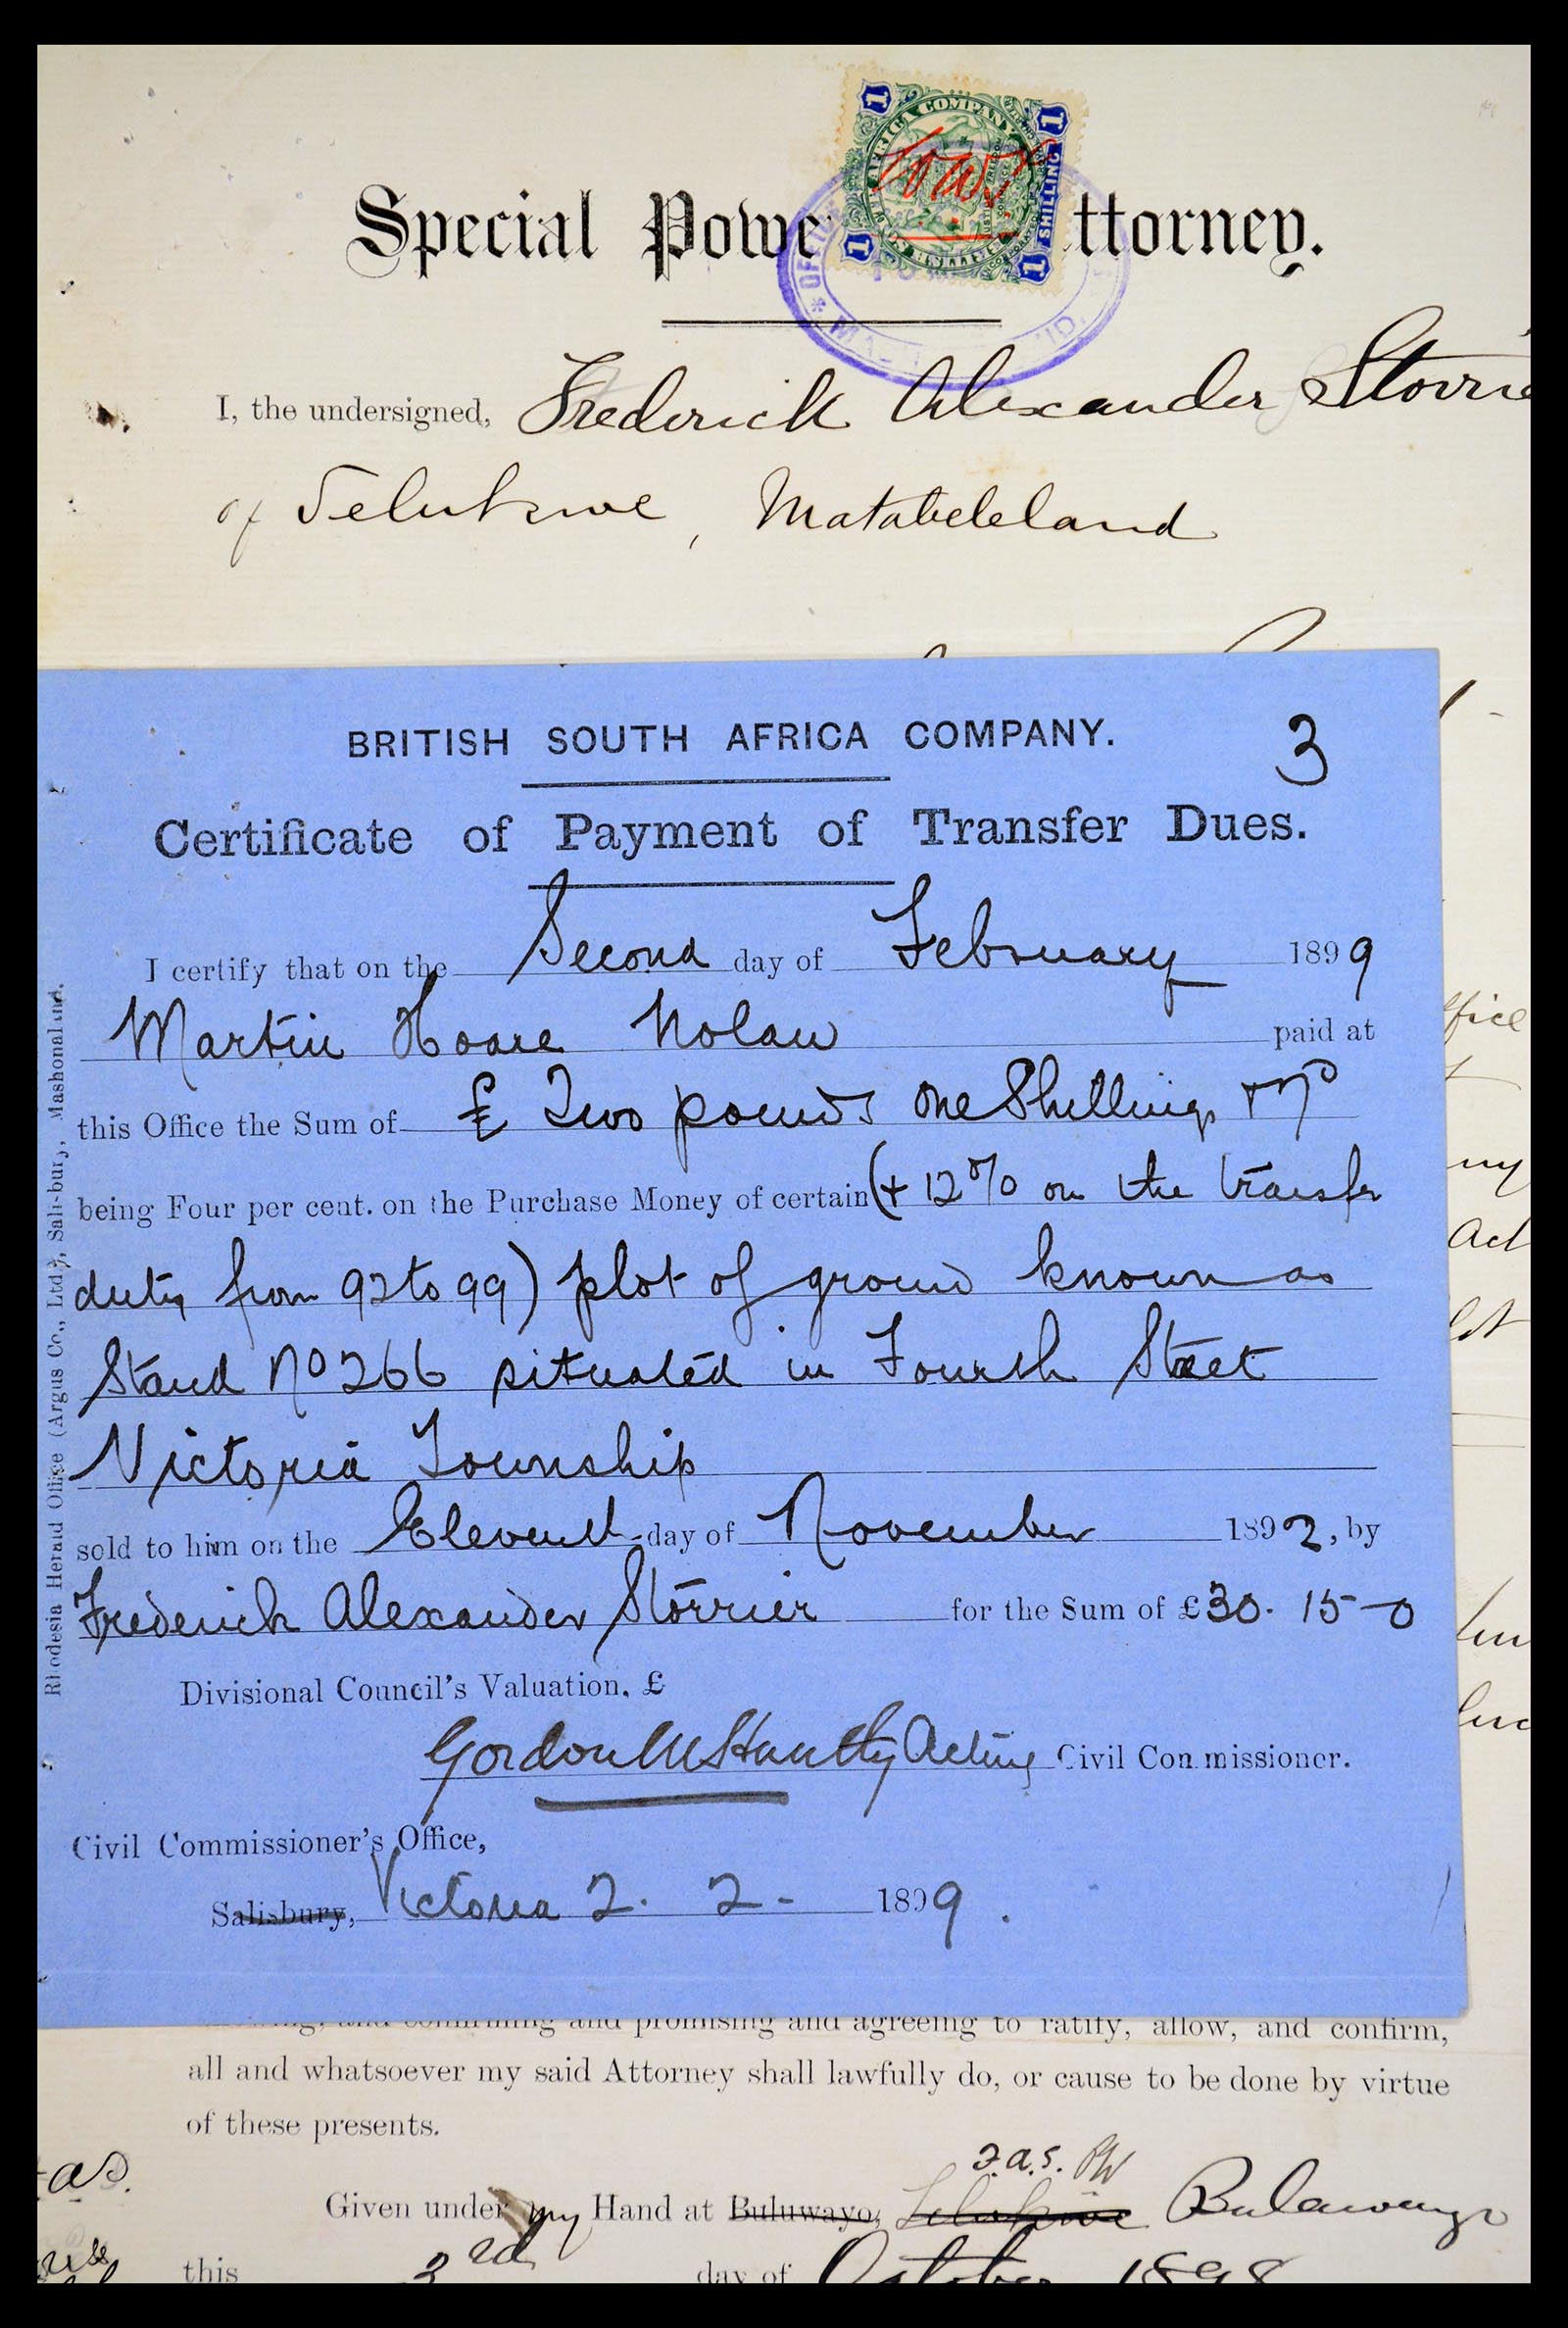 1 COMPANY 1
AFRICA
1 SHILLING 1
Special Powe ttorney.
I, the undersigned, Frederick Alexander Storrie
of Selukwe, Matabeleland
BRITISH SOUTH AFRICA COMPANY. 3
Certificate of Payment of Transfer Dues.
I certify that on the Second day of February 1899
Martin Hoare Nolan paid at
this Office the Sum of £ Two pounds One Shillings
being Four per cent. on the Purchase Money of certain (+ 12% on the transfer
duty from 92 to 99) plot of ground known as
Stand No 266 situated in Fourth Street
Victoria Township
sold to him on the Eleventh day of November 1892, by
Frederick Alexander Storrier for the Sum of £30. 15-0
Divisional Council's Valuation, £
Gordon Acting Civil Commissioner.
Civil Commissioner's Office,
Salisbury, Victoria 2. 2- 1899.
Rhodesia Herald Office (Argus Co., Ltd.), Salisbury, Mashonaland.
ffice
my
Act
and confirming and promising and agreeing to ratify, allow, and confirm,
all and whatsoever my said Attorney shall lawfully do, or cause to be done by virtue
of these presents.
F.A.S. PW
Given under my Hand at Buluwayo, Selukwe Bulawayo
this 3rd day of October 1898